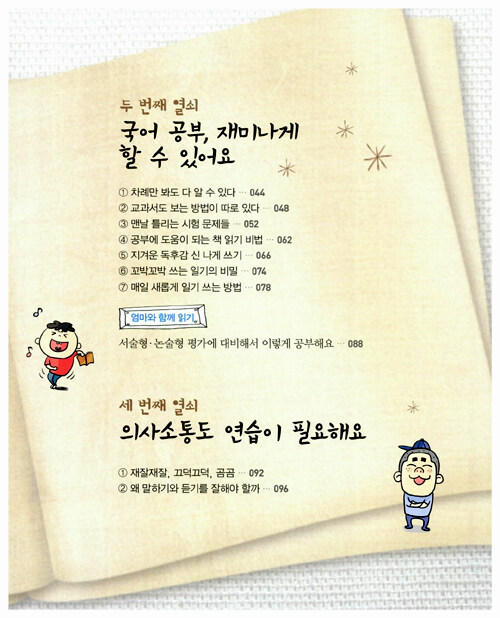 두 번째 열쇠
국어 공부, 재미나게
할 수 있어요
① 차례만 봐도 다 알 수 있다 ··· 044
② 교과서도 보는 방법이 따로 있다 ··· 048
③ 맨날 틀리는 시험 문제들 ··· 052
④ 공부에 도움이 되는 책 읽기 비법 ··· 062
⑤ 지겨운 독후감 신 나게 쓰기 ··· 066
⑥ 꼬박꼬박 쓰는 일기의 비밀 ··· 074
⑦ 매일 새롭게 일기 쓰는 방법 ··· 078
엄마와 함께 읽기
서술형·논술형 평가에 대비해서 이렇게 공부해요 ··· 088
세 번째 열쇠
의사소통도 연습이 필요해요
① 재잘재잘, 끄덕끄덕, 곰곰 ··· 092
② 왜 말하기와 듣기를 잘해야 할까 ··· 096